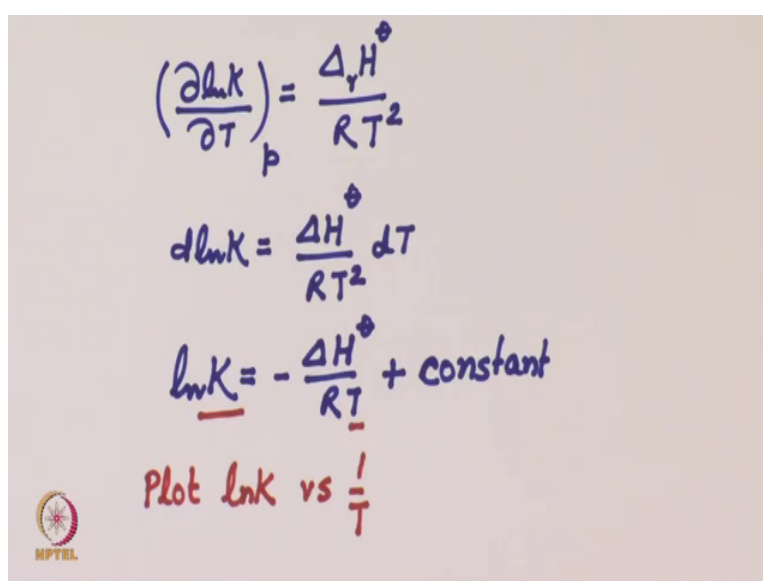 (∂lnK/∂T)p = ΔrH⦵/RT²
dlnK = ΔH⦵/RT² dT
lnK = - ΔH⦵/RT + constant
Plot lnK vs 1/T
NPTEL